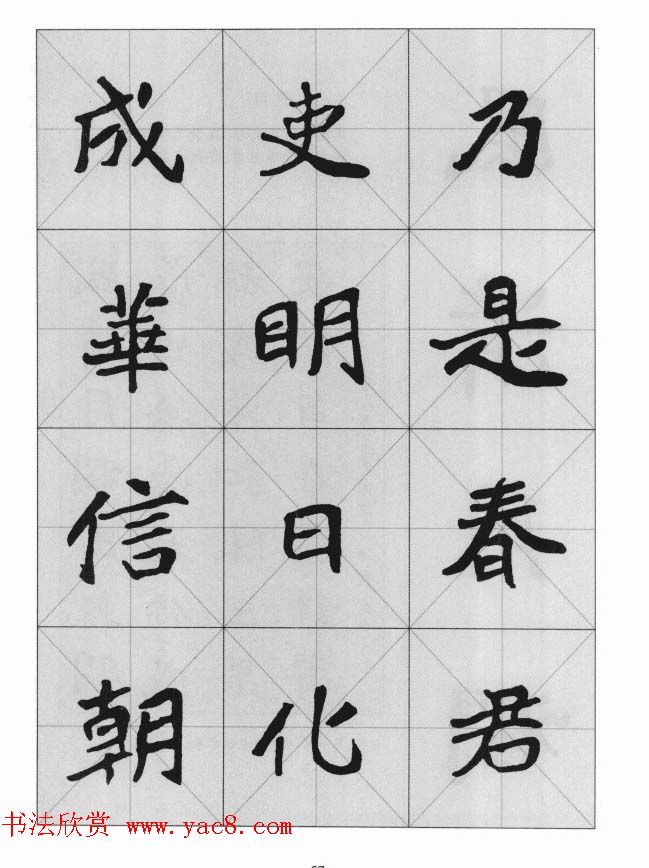 乃是春君
吏眀日化
成華信朝
书法欣赏 www.yac8.com